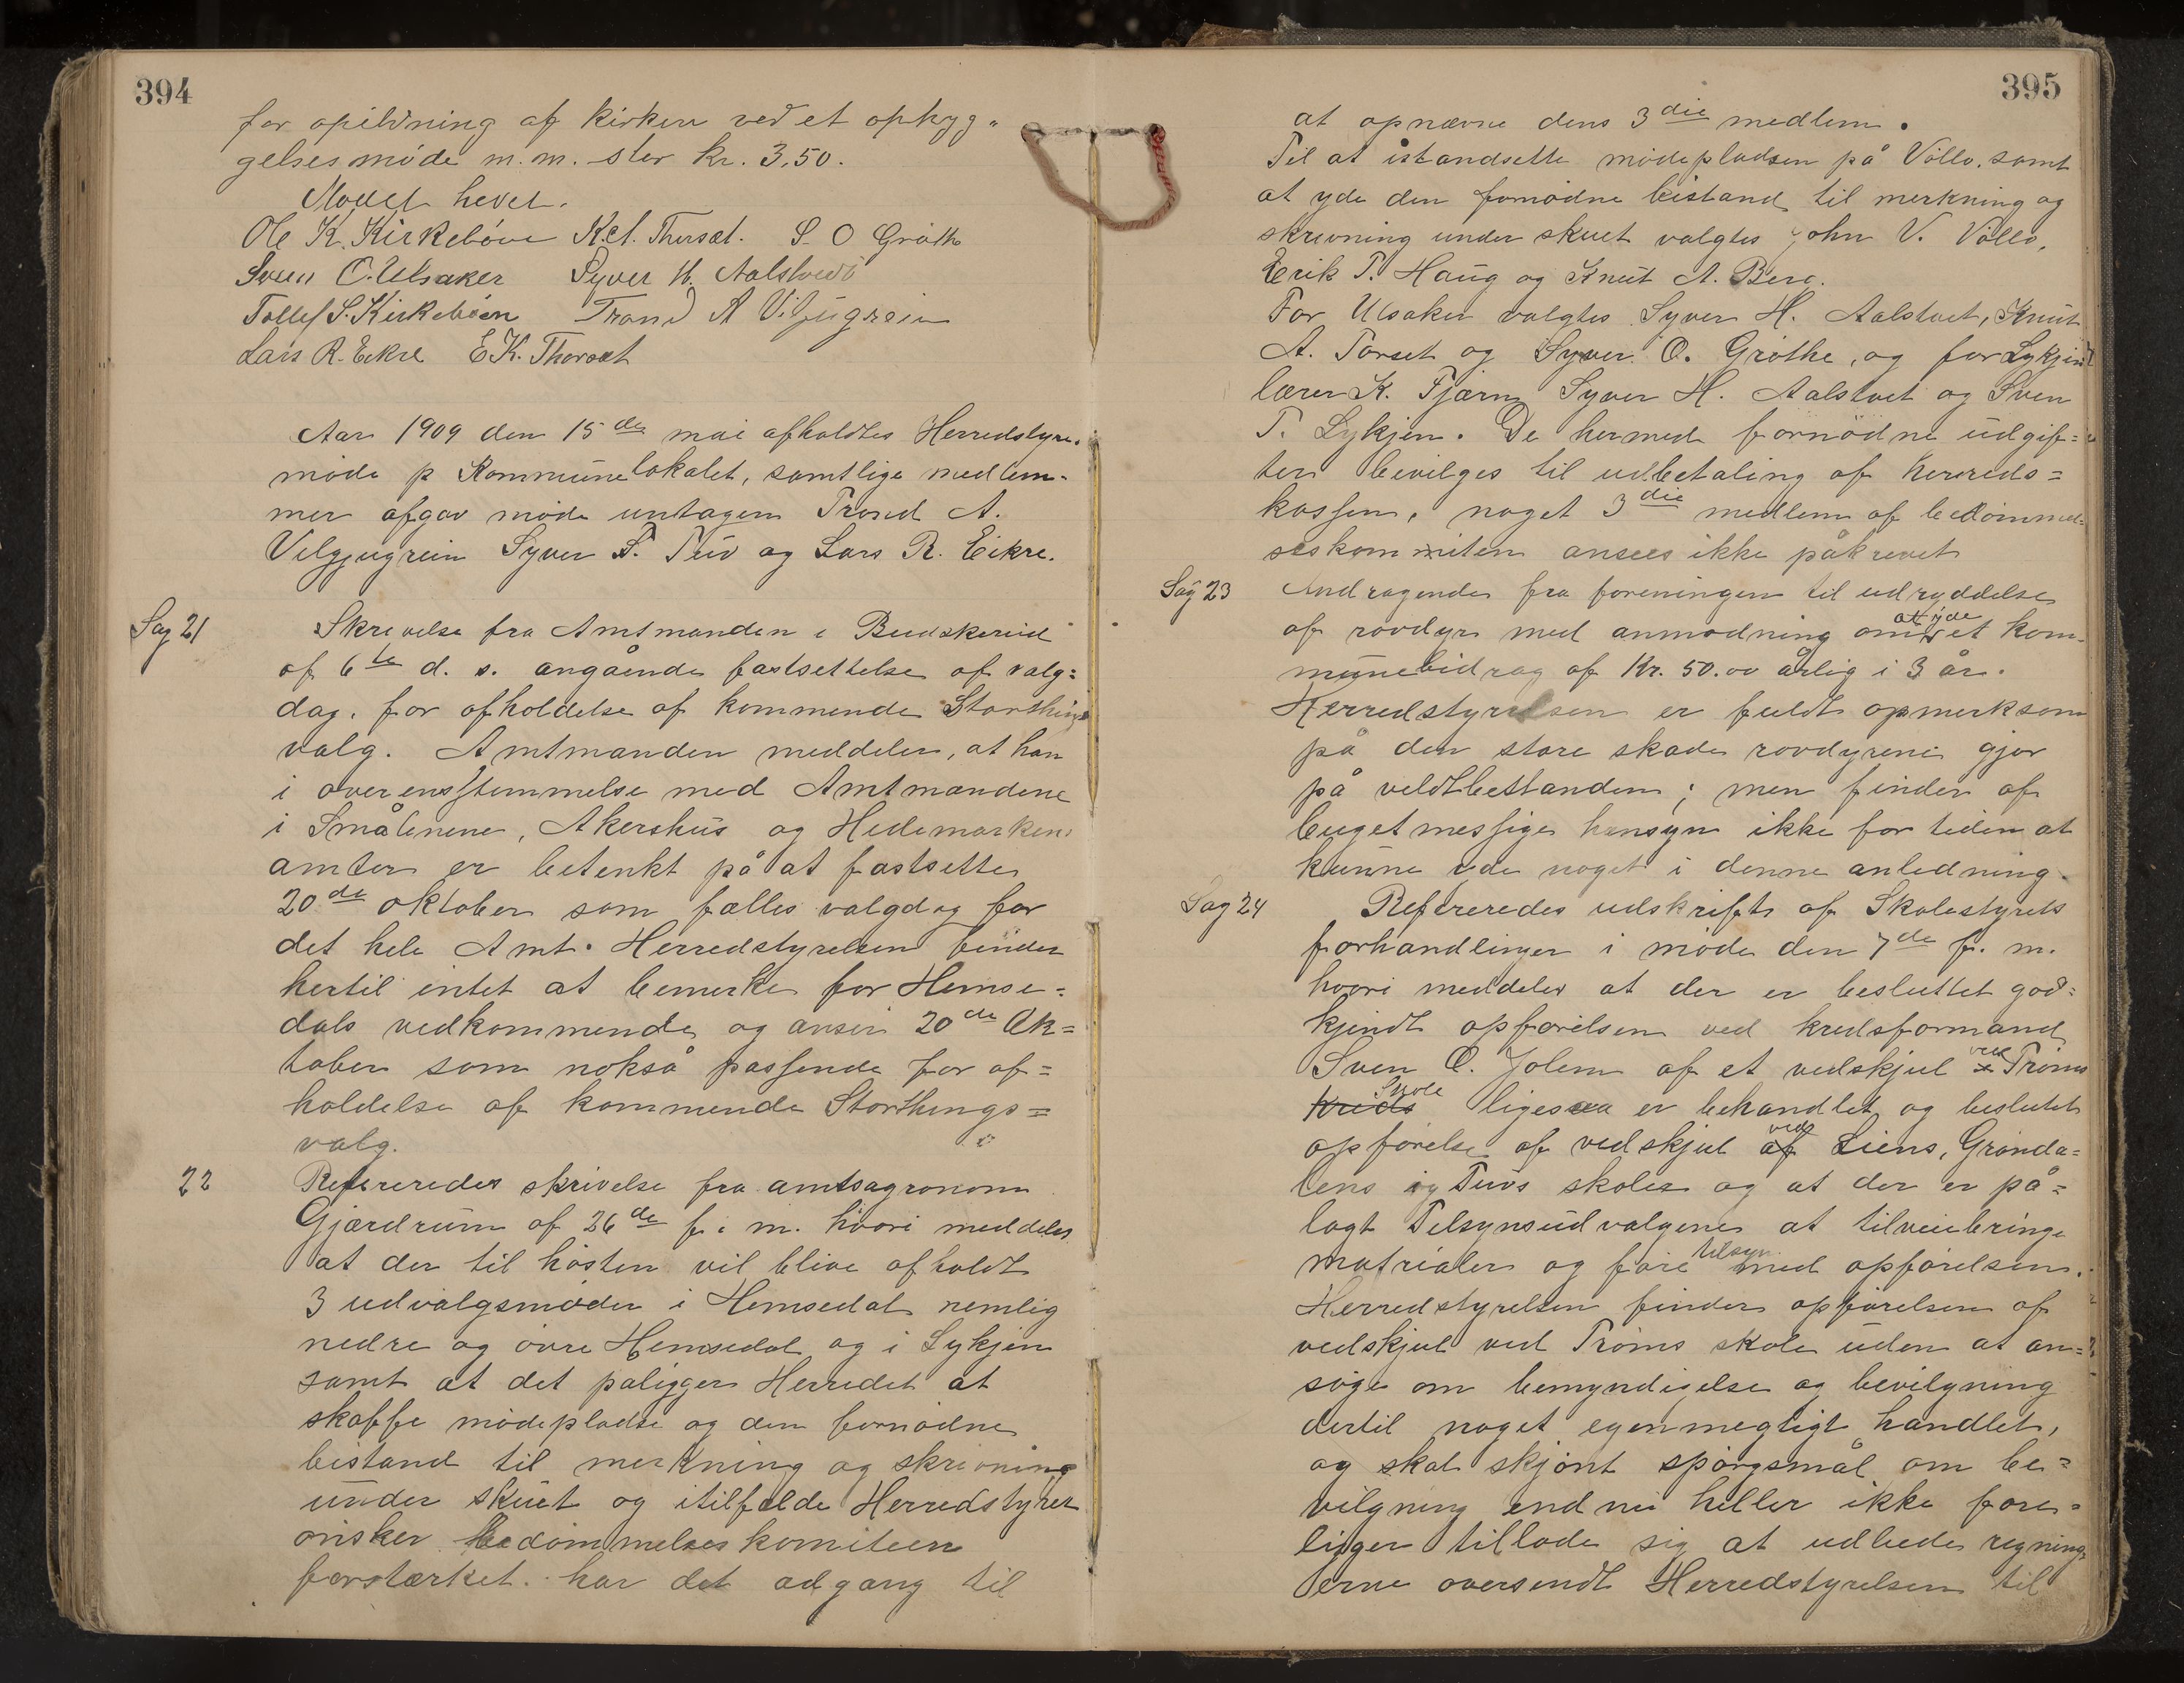 394
for opildning af kirken ved et opbyg„
gelsesmöde m.m. stor kr. 3,50.
Mödet hevet.
Ole K. Kirkeböen K.A. Thorset. S. O Gröthe
Sven O. Ulsaker Syver H. Aalstvedt
Tollef S. Kirkeböen Trond A Viljugrein
Lars R. Eikre E K. Thorset
Aar 1909 den 15de mai afholdtes Herredstyre-
möde p Kommunelokalet, samtlige medlem-
mer afgav möde untagen Trond A.
Velgjugrein Syver T. Tuv og Lars R. Eikre.
Sag 21
Skrivelse fra Amtmanden i Budskerud
af 6te d. s. angående fastsettelse af valg=
dag. for afholdelse af kommende Storthings
valg. Amtmanden meddeler, at han
i overensstemmelse med Amtmandene
i Smålenene, Akershus og Hedemarkens
amter er betenkt på at fastsette
20de oktober som fælles valgdag for
det hele Amt. Herredstyrelsen finder
hertil intet at bemerke for Hemse=
dals vedkommende og anser 20de Ok=
tober som nokså passende for af=
holdelse af kommende Storthings=
valg.
22
Refereredes skrivelse fra amtsagronom
Gjærdrum af 26de f. m. hvori meddeles
at der til hösten vil blive afholdt
3 udvalgsmöder i Hemsedal nemlig
nedre og övre Hemsedal og i Lykjen
samt at det paligger Herredet at
skaffe mödepladse og den fornödne
bistand til merkning og skrivning
under skuet og itilfelde Herredstyret
önsker bedömmelseskomiteen
forsterket. har det adgang til
395
at opnævne dens 3die medlem.
Til at istandsette mödepladsen på Völlo. samt
at yde den fornödne bistand til merkning og
skrivning under skuet valgtes John V. Völlo,
Erik T. Haug og Knut A. Berg.
For Ulsaker valgtes Syver H. Aalstvet, Knut
A. Torset og Syver O. Gröthe, og for Lykjen
lærer K. Fjærn Syver H. Aalstvet og Sven
T. Lykjen. De hermed fornödne udgif=
ter bevilges til udbetaling af herreds=
kassen, noget 3die medlem af bedömmel-
seskommiten ansees ikke påkrevet
Sag 23
Andragende fra foreningen til udryddelse
af rovdyr med anmodning om at yde et kom-
munebidrag af Kr. 50.00 årlig i 3 år.
Herredstyrelsen er fuldt opmerksom
på den store skade rovdyrene gjör
på veldtbestanden; men finder af
buget messige hensyn ikke for tiden at
kunne yde noget i denne anledning.
Sag 24
Refereredes udskrift af Skolestyrets
forhandlinger i möde den 7de f. m.
hvori meddeles at der er besluttet god=
kjendt opförelsen ved kredsformand
Sven O. Jolem af et vedskjul ved Tröms
Kreds Skole ligesaa er behandlet og besluttet
opförelse af vedskjul af ved Liens, Grönda=
lens og Tuvs skoler og at der er på=
lagt Tilsynsudvalgene at tilveiebringe
matrialer og före tilsyn med opförelsen.
Herredstyrelsen finder opförelsen af
vedskjul ved Tröms skole uden at an=
söge om bemyndigelse og bevilgning
dertil noget egenmegtigt handlet,
og skal skjönt spörgsmål om be=
vilgning endnu heller ikke fore=
ligger tillade sig at udbede regning-
erne oversendt Herredstyrelsen til